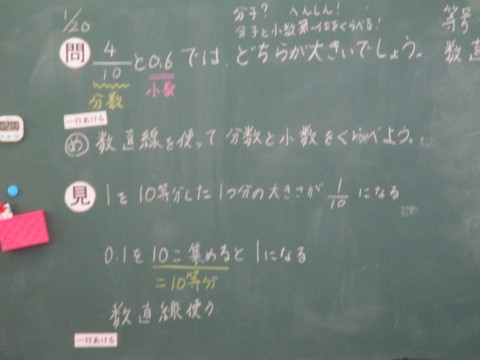 1/20
分子? へんしん!
分子と小数第一位をくらべる!
等号
数直
問 4/10と0.6では、どちらが大きいでしょう。
分数 小数
一行あける
め 数直線を使って分数と小数をくらべよう。
見 1を10等分した1つ分の大きさが1/10になる
0.1を10こ集めると1になる
=10等分
数直線使う
一行あける